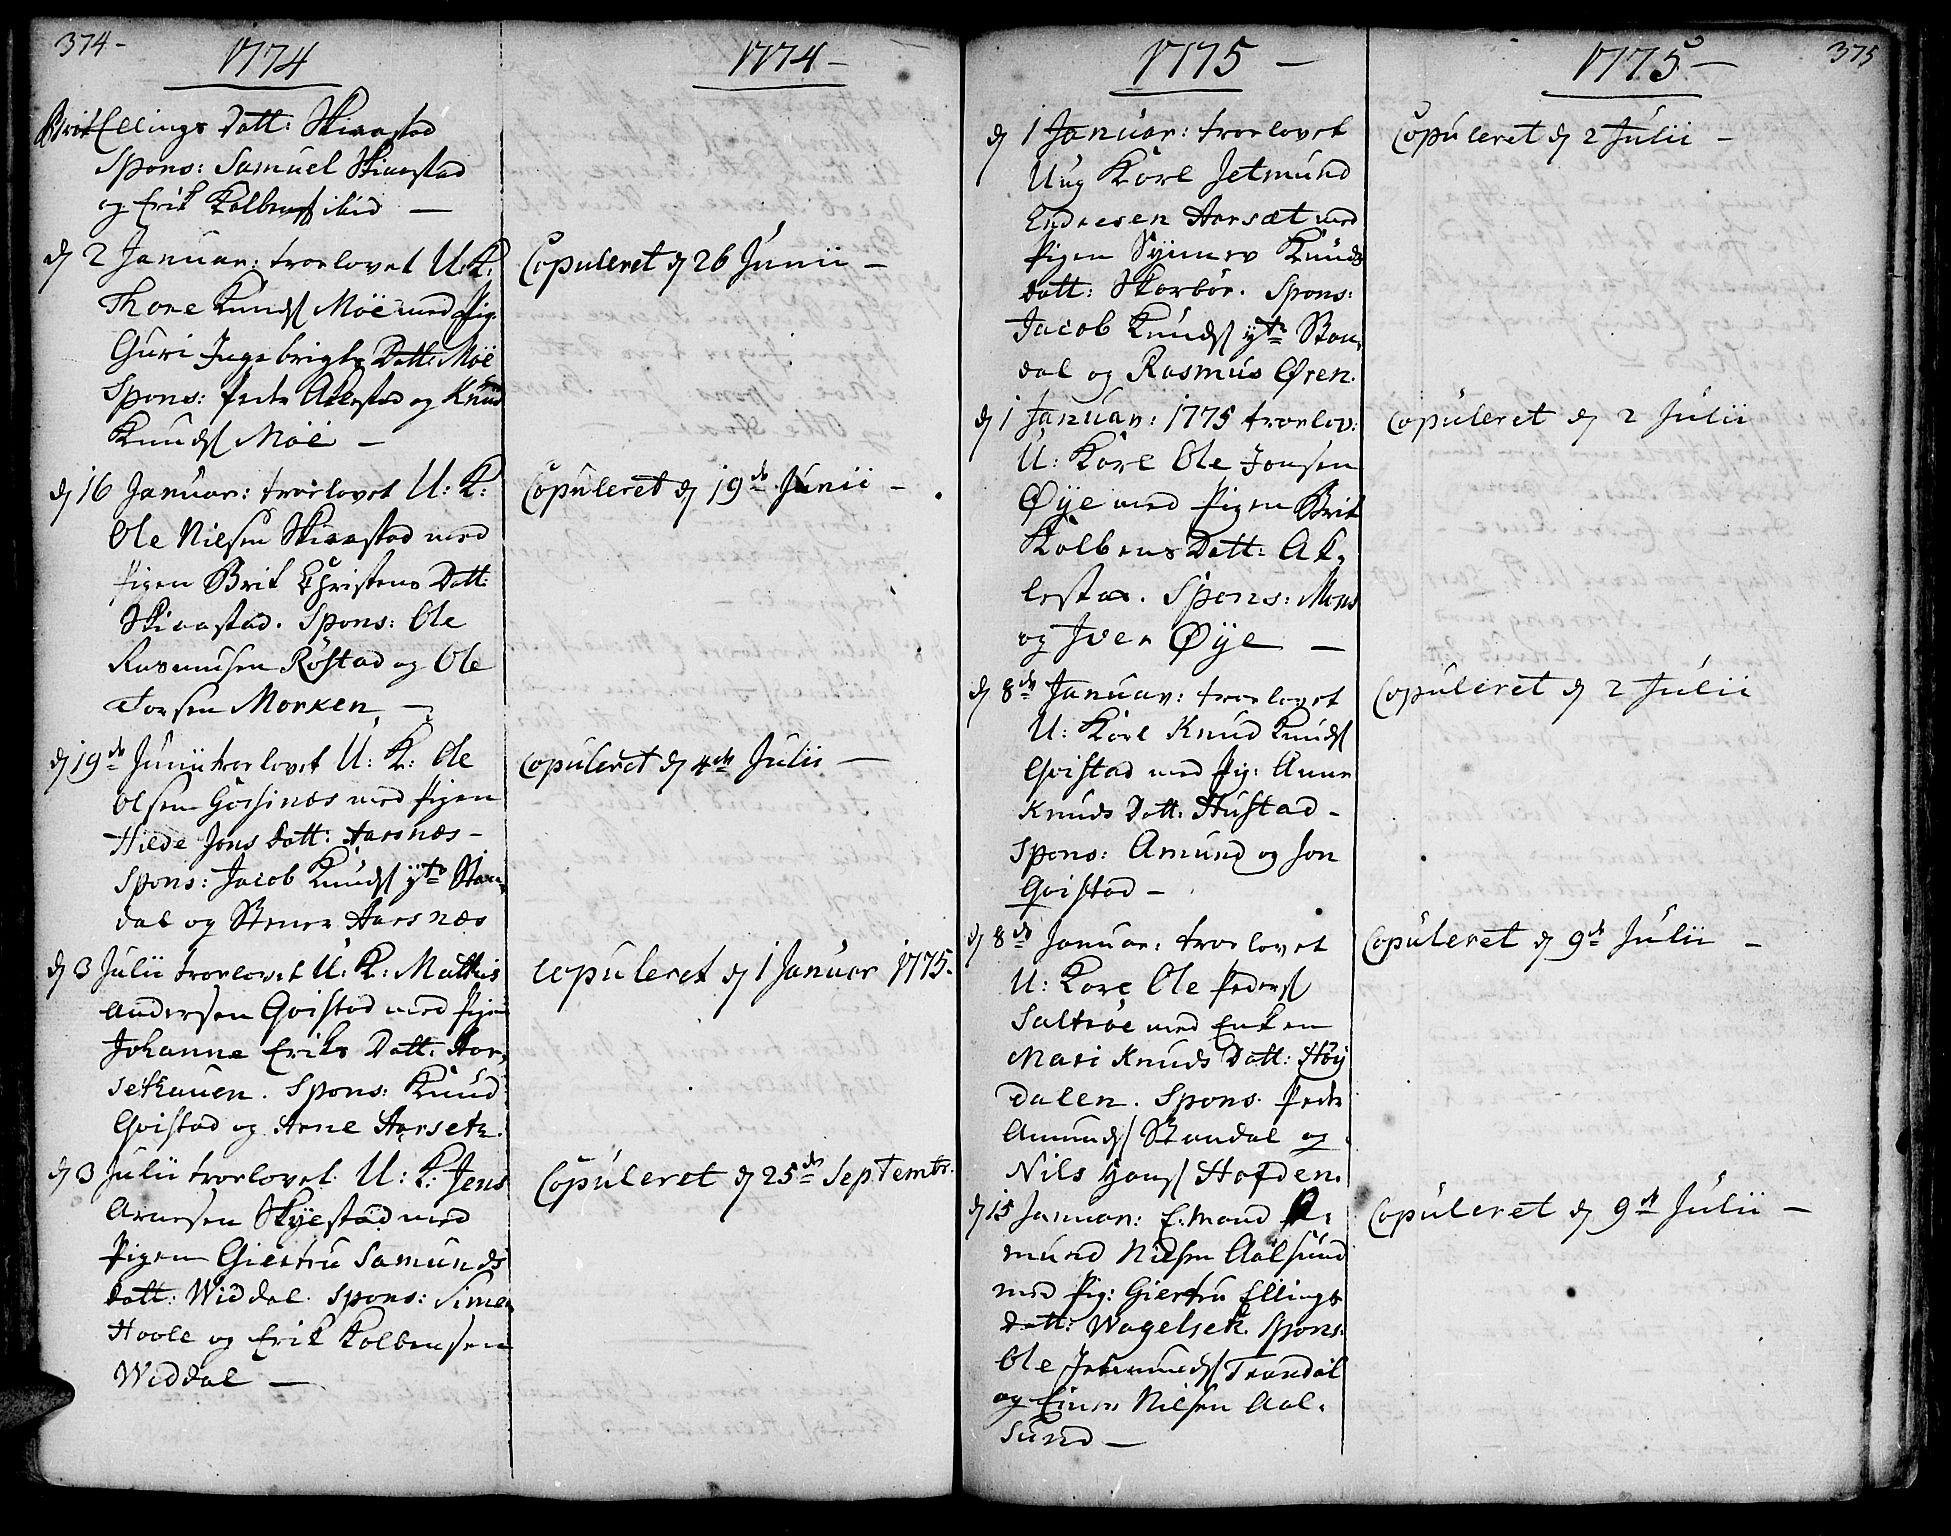 374-
1774
Brit Ellings Datt: Skiaastad
Spons: Samuel Skiaastad
og Erik Kolbens: ibid —
d 2 Januar: trorlovet U: K:
Thore Knuds: Möe med Pig:
Guri Ingebrigts Datt: Möe
Spons: Peder Aklestad og Knud
Knuds: Möe —
d 16 Januar: trorlovet U: K:
Ole Nielsen Skiaastad med
Pigen Brit Christens Datt:
Skiaastad. Spons: Ole
Rasmusen Röstad og Ole
Torsen Morken —
d 19de Junii trorlovet U: K: Ole
Olsen med Pigen
Hilde Jons Datt: Aarsnæs -
Spons: Jacob Knuds: yte Stan,
dal og Stener Aarsnæs
d 3 Julii trorlovet U: K: Mathis
Andersen Qvistad med Pigen
Johanne Eriks Datt: Aar,
sethauen. Spons: Knud
Qvistad og Arne Aarseth.
d 3 Julii trorlovet U: K: Jens
Arnesen Skyestad med
Pigen Giertru Samunds
Datt: Widdal. Spons: Simen
Hoole og Erik Kolbensen
Widdal —
1774 —
Copuleret d 26 Junii —
Copuleret d 19de Junii —
Copuleret d 4de Julii —
Copuleret d 1 Januar 1775.
Copuleret d 25de Septembr.
1775 —
d 1 Januar: trorlovet
Ung Körl Jetmund
Endresen Aarsæt med
Pigen Synnev Knuds
Datt: Skorbör. Spons:
Jacob Knuds: yte Stan,
dal og Rasmus Øren.
d 1 Januar: 1775 trorlov:
U: Körl Ole Jonsen
Øye med Pigen Brit
Kolbens Datt: Ak,
lestad. Spons: Mons
og Iver Øye —
d 8de Januar: trorlovet
U: Körl Knud Knuds:
Qvistad med Pig: Anne
Knuds Datt: Hustad -
Spons: Amund og Jon
Qvistad —
d 8de Januar: trorlovet
U: Körl Ole Peders:
Saltröe med Enken
Mari Knuds Datt: Höy
dalen. Spons. Peder
Amunds: Standal og
Nils Hans: Hofden.
d 15 Januar: E:mand
mund Nielsen Aalsund
med Pig: Giertru Ellings
Datt: Wagelsek. Spons:
Ole Jetmunds: Trandal
og Einer Nilsen Aal,
sund —
1775 —
375
Copuleret d 2 Julii —
Copuleret d 2 Julii
Copuleret d 2 Julii
Copuleret d 9de Julii —
Copuleret d 9de Julii —